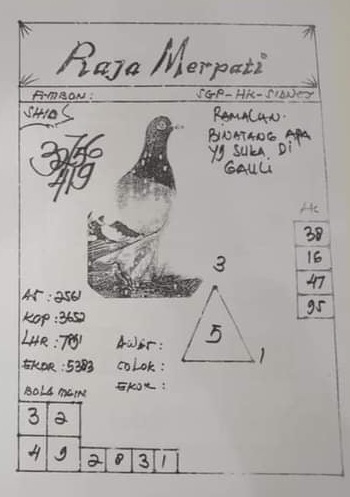 Raja Merpati
AMBON :
SGP-HK-SIDNEY
SHIO
RAMALAN.
BINATANG APA
YG SUKA DI
GAULI
3756
419
38
16
47
95
3
5
1
AS : 2561
KOP : 3652
LHR : 7891
EKOR : 5383
AWAR :
COLOK :
EKOR :
BOLA MAIN
3 2
4 9
2 8 3 1